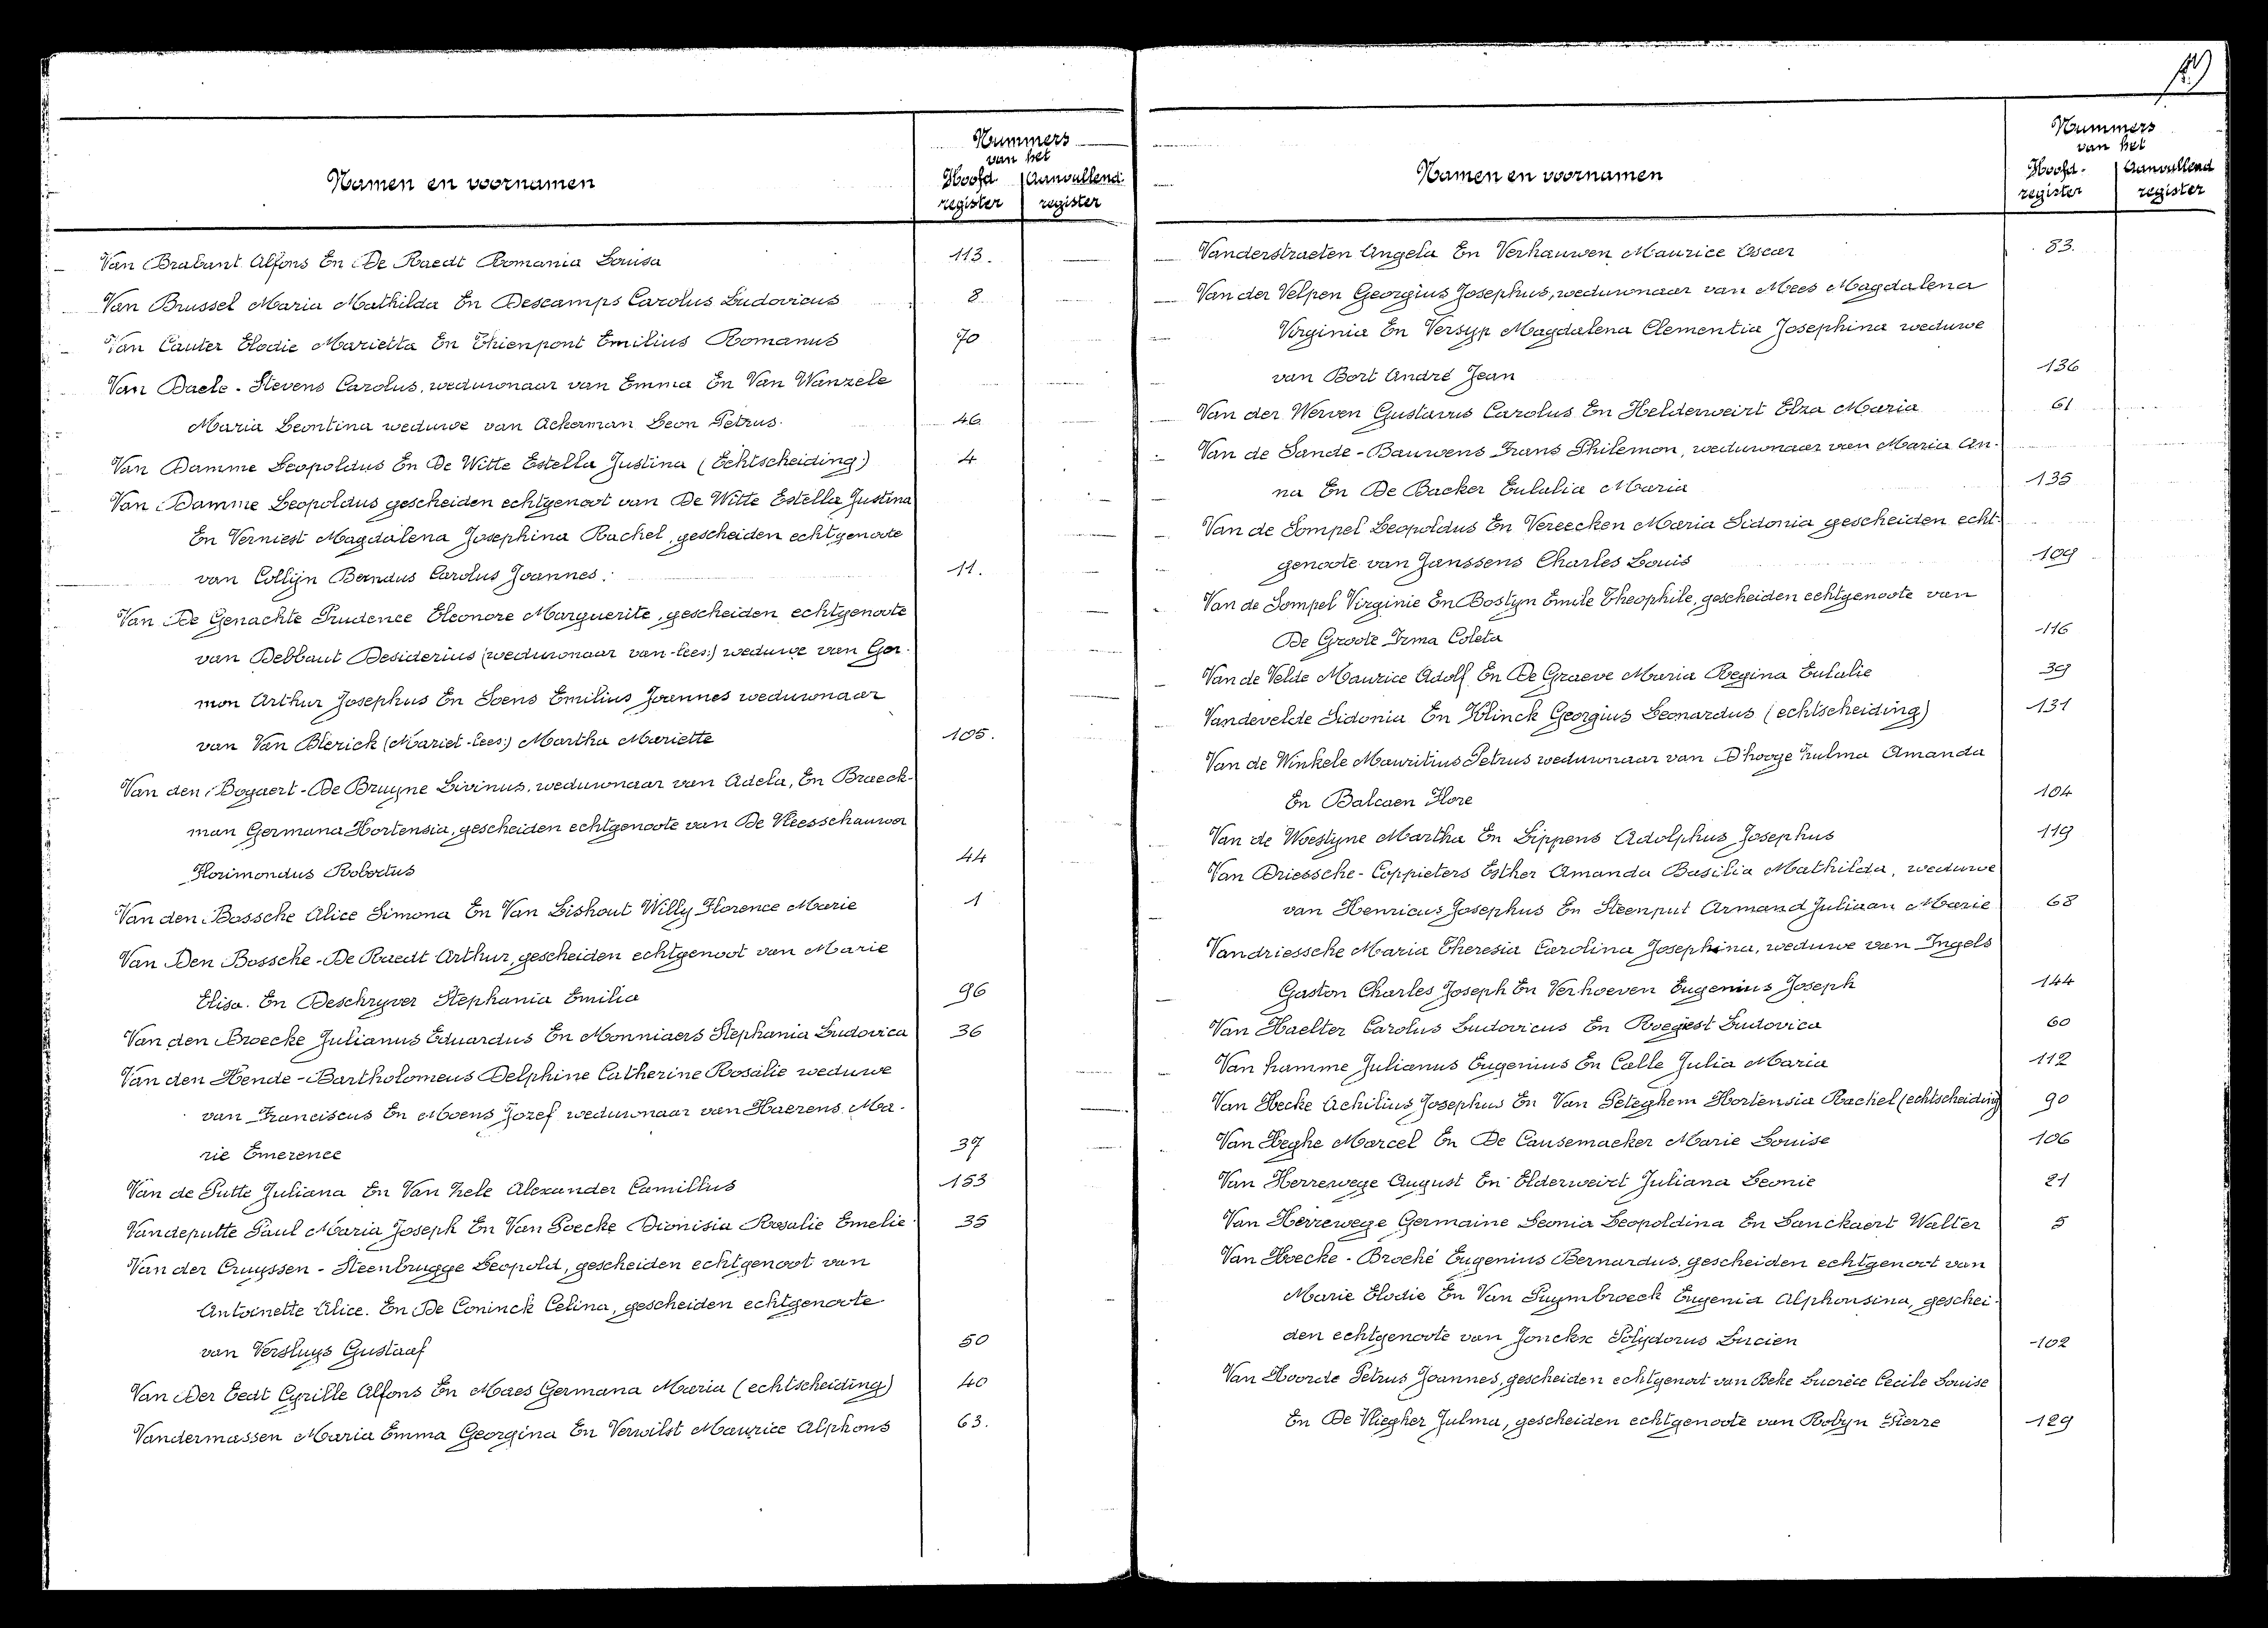 Nummers
van het
Namen en voornamen
Hoofd- Aanvullend-
register register
Van Brabant Alfons En De Raedt Romania Louisa 113.
Van Brussel Maria Mathilda En Descamps Carolus Ludovicus 8
Van Cauter Elodie Marietta En Thienpont Emilius Romanus 70
Van Daele - Stevens Carolus, weduwnaar van Emma En Van Wanzele
Maria Leontina weduwe van Ackerman Leon Petrus. 46
Van Damme Leopoldus En De Witte Estella Justina (Echtscheiding) 4
Van Damme Leopoldus gescheiden echtgenoot van De Witte Estella Justina
En Verniest Magdalena Josephina Rachel, gescheiden echtgenoote
van Collijn Carolus Joannes. 11.
Van De Genachte Prudence Eleonore Marguerite, gescheiden echtgenoote
van Debbaut Desiderius (weduwnaar van - lees:) weduwe van Ger-
mon Arthur Josephus En Soens Emilius Joannes weduwnaar
van Van Blerick (Mariet - lees:) Martha Mariette 105.
Van den Bogaert - De Bruyne Livinus, weduwnaar van Adela, En Braeck-
man Germana Hortensia, gescheiden echtgenoote van De Vleesschauwer
Florimondus Robertus 44
Van den Bossche Alice Simona En Van Lishout Willy Florence Marie 1
Van Den Bossche - De Raedt Arthur, gescheiden echtgenoot van Marie
Elisa. En Deschryver Stephania Emilia 96
Van den Broecke Julianus Eduardus En Monniaers Stephania Ludovica 36
Van den Hende - Bartholomeus Delphine Catherine Rosalie weduwe
van Franciscus En Moens Jozef weduwnaar van Haerens Ma-
rie Emerence 37
Van de Putte Juliana En Van Zele Alexander Camillus 153
Vandeputte Paul Maria Joseph En Van Poecke Dionisia Rosalie Emelie 35
Van der Cruyssen - Steenbrugge Leopold, gescheiden echtgenoot van
Antoinette Alice. En De Coninck Celina, gescheiden echtgenoote
van Versluys Gustaaf 50
Van Der Eedt Cyrille Alfons En Maes Germana Maria (echtscheiding) 40
Vandermassen Maria Emma Georgina En Verwilst Maurice Alphons 63.
Nummers
van het
Namen en voornamen
Hoofd- Aanvullend
register register
Vanderstraeten Angela En Verhauwen Maurice Oscar 83.
Van der Velpen Georgius Josephus, weduwnaar van Mees Magdalena
Virginia En Versyp Magdalena Clementia Josephina weduwe
van Bort André Jean 136
Van der Werven Gustavus Carolus En Helderweirt Elza Maria 61
Van de Sande - Bauwens Frans Philemon, weduwnaar van Maria An-
na En De Backer Eulalia Maria 135
Van de Sompel Leopoldus En Vereecken Maria Sidonia gescheiden echt-
genoote van Janssens Charles Louis 109
Van de Sompel Virginie En Bostyn Emile Theophile, gescheiden echtgenoote van
De Groote Irma Coleta 116
Van de Velde Maurice Adolf En De Graeve Maria Regina Eulalie 39
Vandevelde Sidonia En Klinck Georgius Leonardus (echtscheiding) 131
Van de Winkele Mauritius Petrus weduwnaar van D'hooge Zulma Amanda
En Balcaen Flore 104
Van de Woestyne Martha En Lippens Adolphus Josephus 119
Van Driessche - Coppieters Esther Amanda Basilia Mathilda, weduwe
van Henricus Josephus En Steenput Armand Juliaan Marie 68
Vandriessche Maria Theresia Carolina Josephina, weduwe van Ingels
Gaston Charles Joseph En Verhoeven Eugenius Joseph 144
Van Haelter Carolus Ludovicus En Roegiest Ludovica 60
Van hamme Julianus Eugenius En Calle Julia Maria 112
Van Hecke Achilius Josephus En Van Peteghem Hortensia Rachel (echtscheiding) 90
Van Heghe Marcel En De Causemaeker Marie Louise 106
Van Herrewege August En Elderweirt Juliana Leonie 21
Van Herrewege Germaine Leonia Leopoldina En Lanckaert Walter 5
Van Hoecke - Broché Eugenius Bernardus, gescheiden echtgenoot van
Marie Elodie En Van Puymbroeck Eugenia Alphonsina, geschei-
den echtgenoote van Jonckx Polydorus Lucien 102
Van Hoorde Petrus Joannes, gescheiden echtgenoot van Beke Lucrèce Cecile Louise
En De Vliegher Julma, gescheiden echtgenoote van Robyn Pierre 129